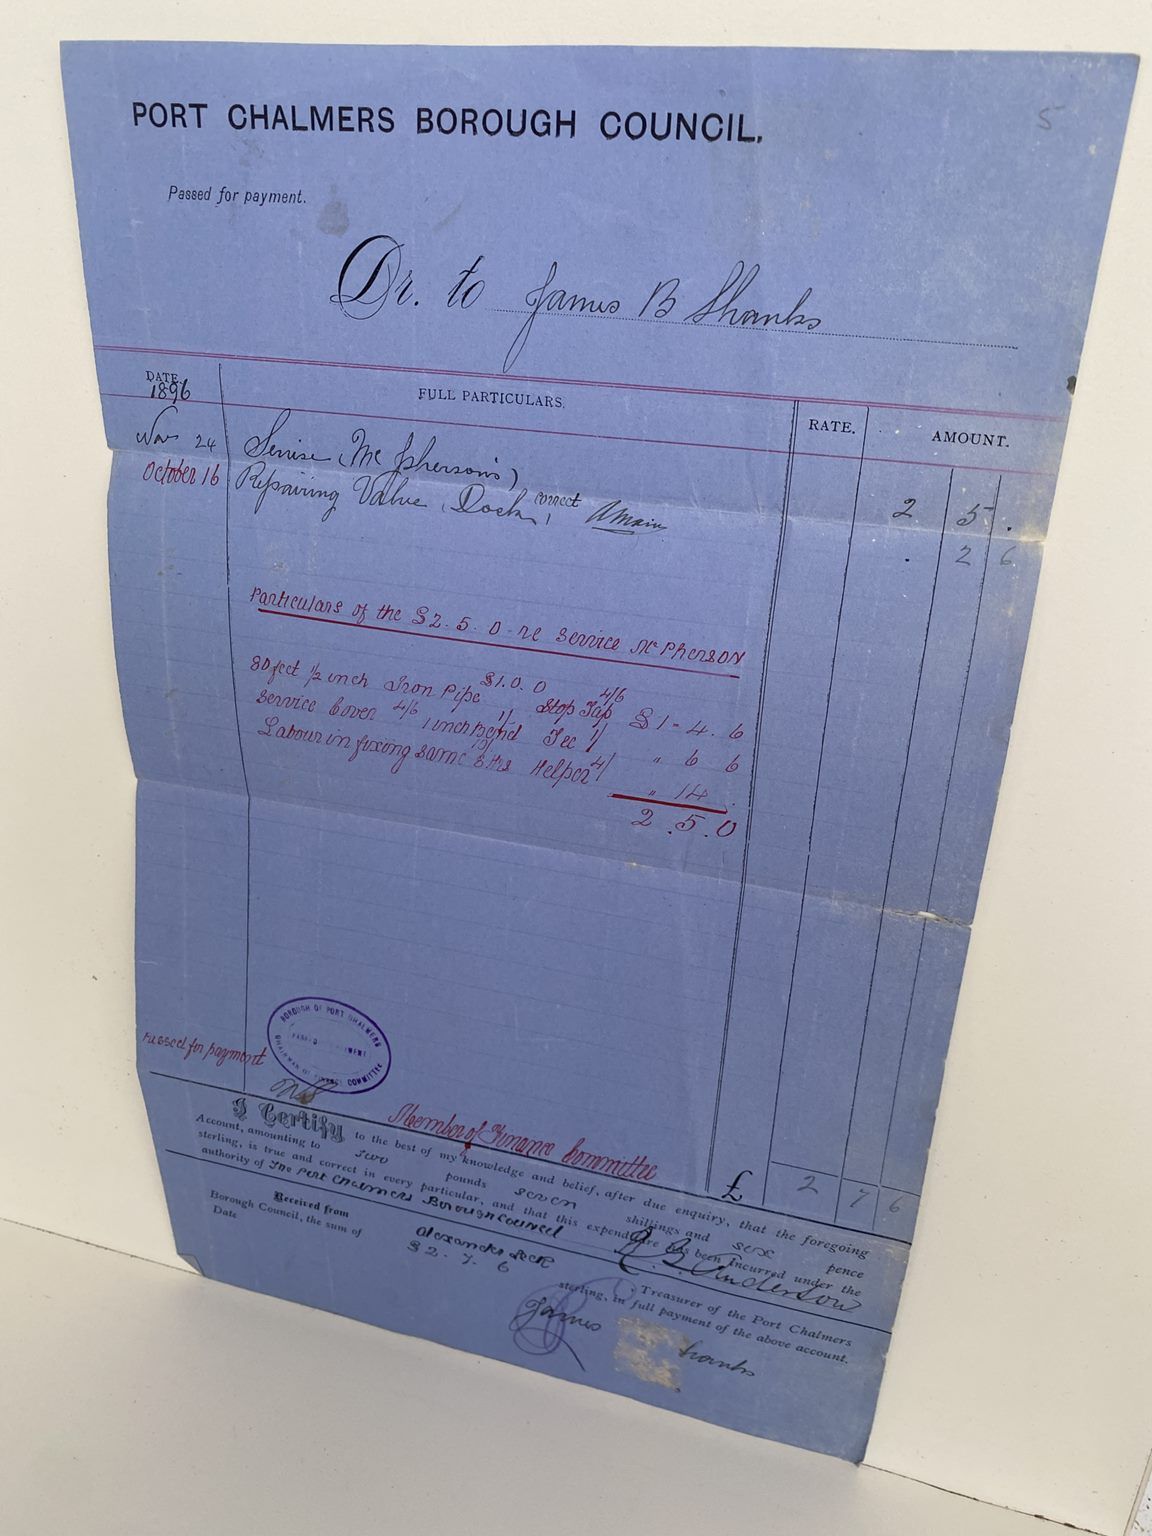 5
PORT CHALMERS BOROUGH COUNCIL.
Passed for payment.
Dr. to James B Shanks
DATE. FULL PARTICULARS. RATE. AMOUNT.
1896
Nov 24 Service (Mc Pherson's) 2 5 .
October 16 Repairing Valve (Dock) correct . 2 6
Particulars of the £2. 5. 0 - re Service McPherson
80 feet 1/2 inch Iron Pipe £1. 0. 0 Stop Tap 4/6 £1 - 4. 6
Service Cover 4/6 1 inch Bend 1/ Tee 1/ " 6 6
Labour in fixing same 8 Hrs 10/ Helper 4/ " 14 .
2 . 5. 0
BOROUGH OF PORT CHALMERS
PASSED PAYMENT
CHAIRMAN OF FINANCE COMMITTEE
Passed for payment
Member of Finance Committee
£ 2 7 6
I Certify to the best of my knowledge and belief, after due enquiry, that the foregoing
Account, amounting to two pounds seven shillings and six pence
sterling, is true and correct in every particular, and that this expenditure has been incurred under the
authority of The Port Chalmers Borough Council
R. B. Anderson
Received from Treasurer of the Port Chalmers
Borough Council, the sum of £2. 7. 6 sterling, in full payment of the above account.
Date James hanks